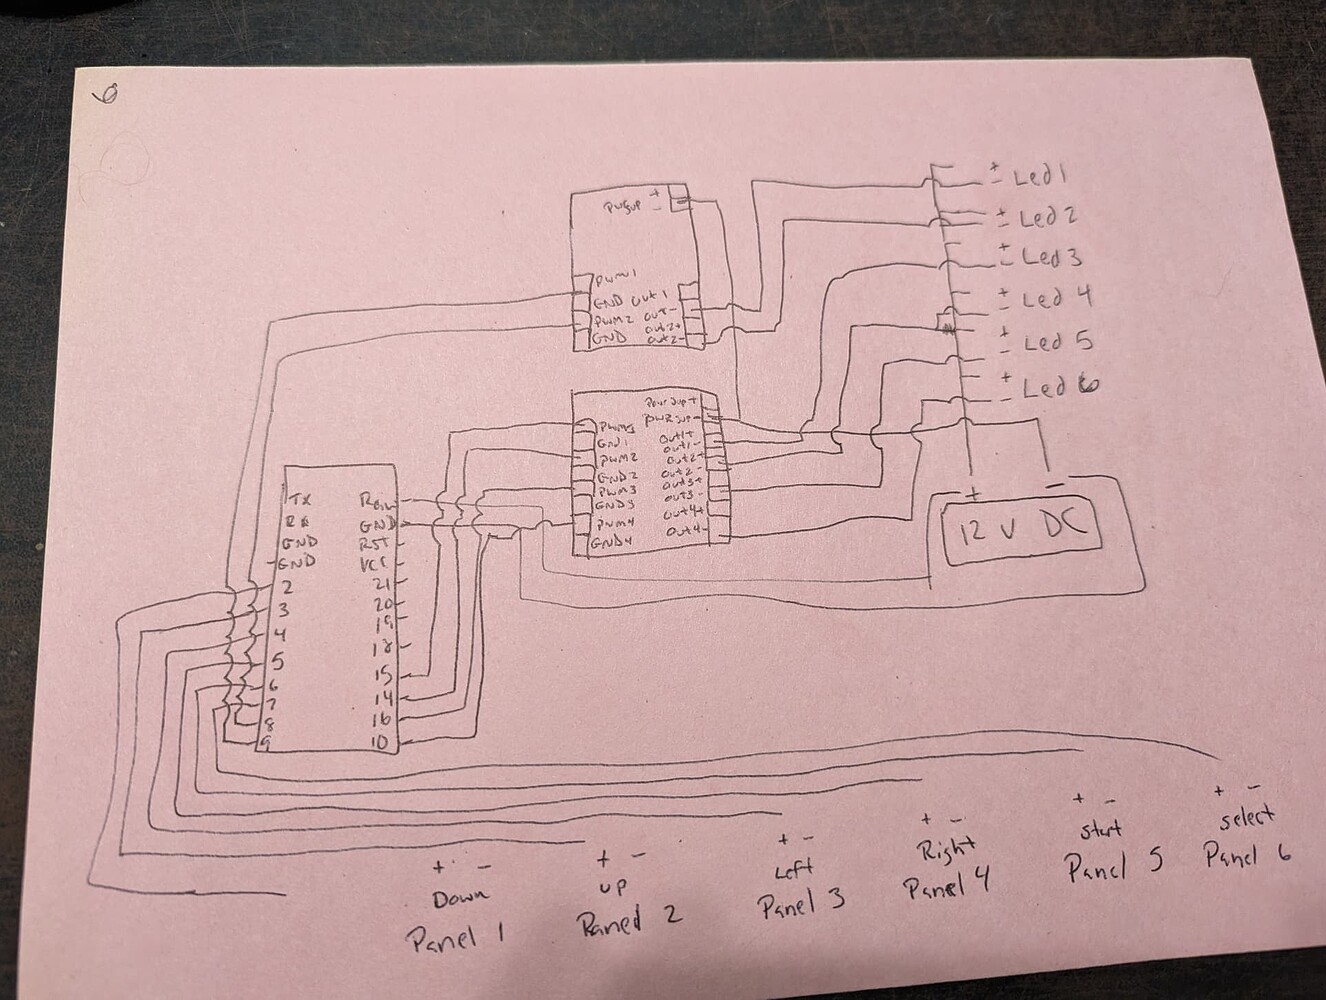 6
+ - Led 1
+ - Led 2
+ - Led 3
+ - Led 4
+ - Led 5
+ - Led 6
+
-
PWM1
GND
out1
PWM2
out-
GND
out2+
out2-
PWM
GND1
PWM2
GND2
PWM3
GND3
PWM4
GND4
out1+
out1-
out2+
out2-
out3+
out3-
out4+
out4-
+ -
12 V DC
TX
GND
GND
2
3
4
5
6
7
8
9
Raw
GND
RST
VCC
21
20
19
18
15
14
16
10
+ -
Down
Panel 1
+ -
up
Paned 2
+ -
Left
Panel 3
+ -
Right
Panel 4
+ -
start
Panel 5
+ -
select
Panel 6